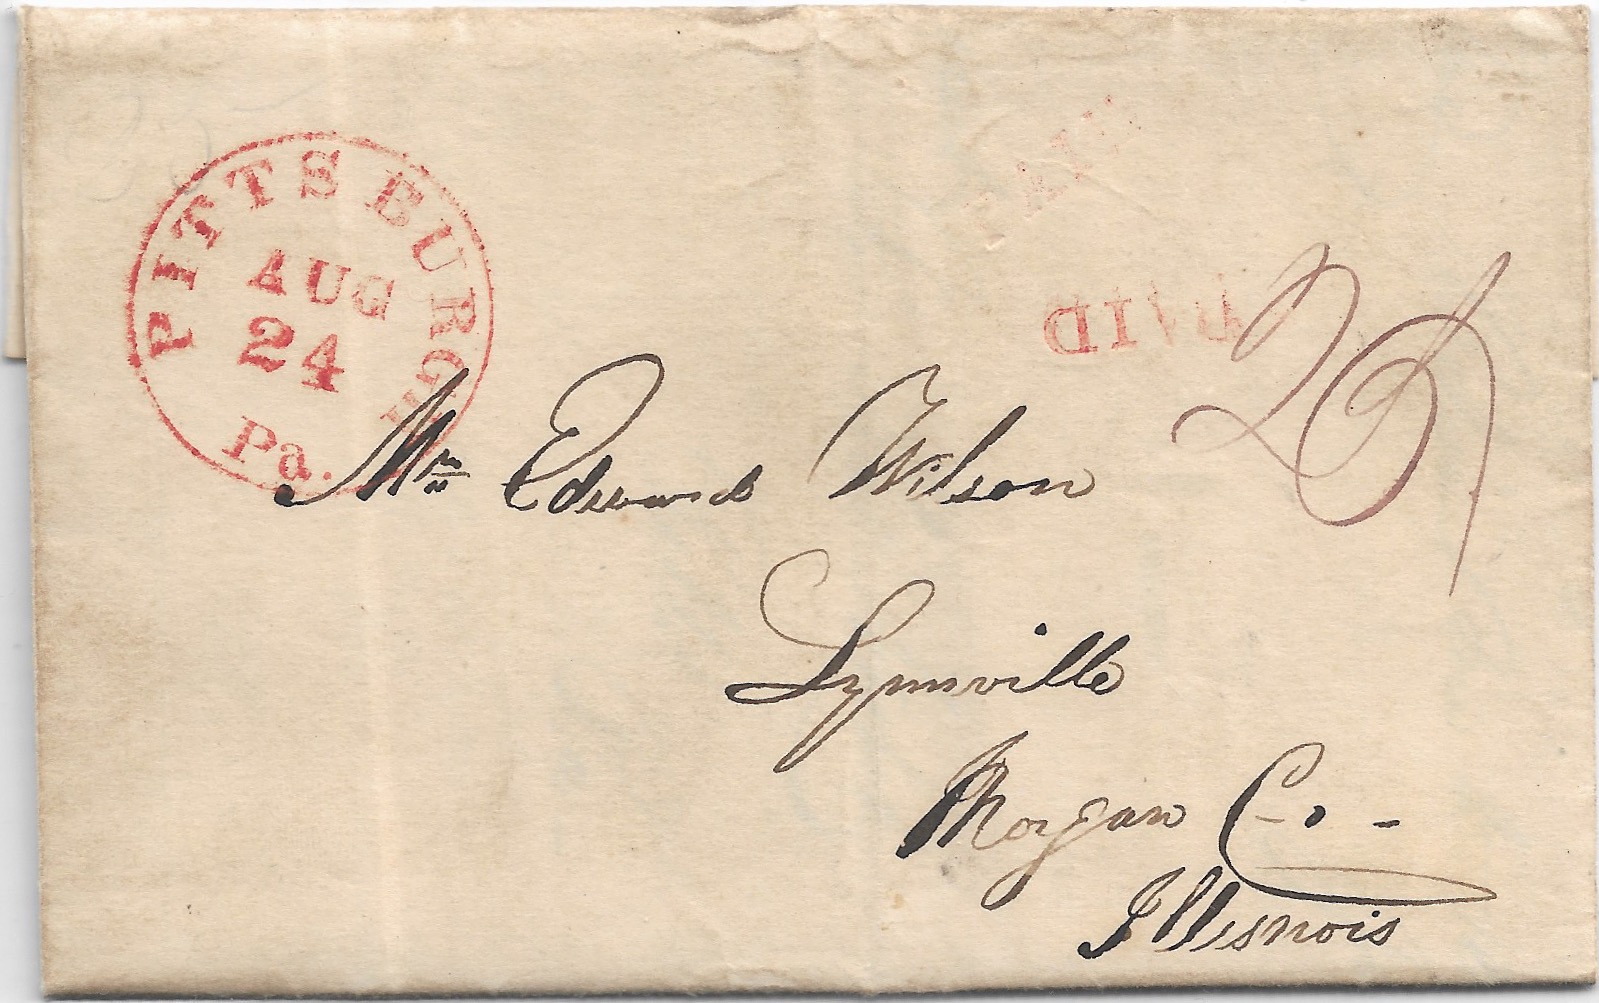 PITTSBURGH
AUG
24
Pa.
PAID
PAID
25
Mr. Edward Wilson
Lynnville
Morgan Co. -
Illisnois